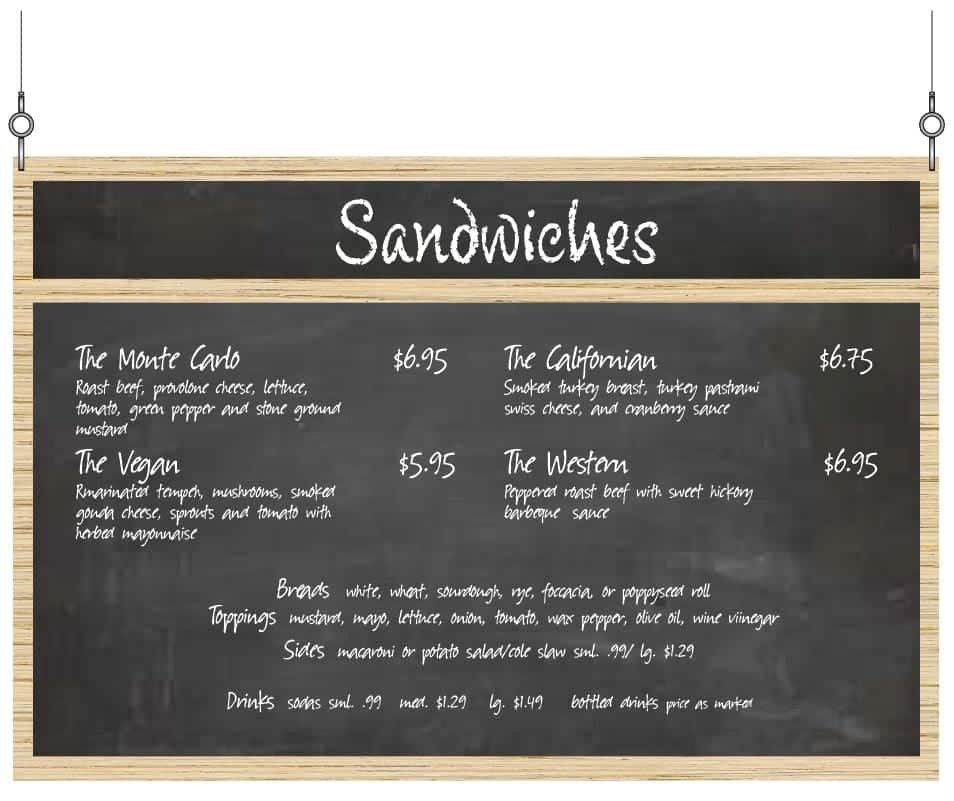 Sandwiches
The Monte Carlo $6.95
Roast beef, provolone cheese, lettuce,
tomato, green pepper and stone ground
mustard
The Californian $6.75
Smoked turkey breast, turkey pastrami
swiss cheese, and cranberry sauce
The Vegan $5.95
Rmarinated tempeh, mushrooms, smoked
gouda cheese, sprouts and tomato with
herbed mayonnaise
The Western $6.95
Peppered roast beef with sweet hickory
barbeque sauce
Breads white, wheat, sourdough, rye, foccacia, or poppyseed roll
Toppings mustard, mayo, lettuce, onion, tomato, wax pepper, olive oil, wine viinegar
Sides macaroni or potato salad/cole slaw sml. .99/ lg. $1.29
Drinks sodas sml. .99 med. $1.29 lg. $1.49 bottled drinks price as marked